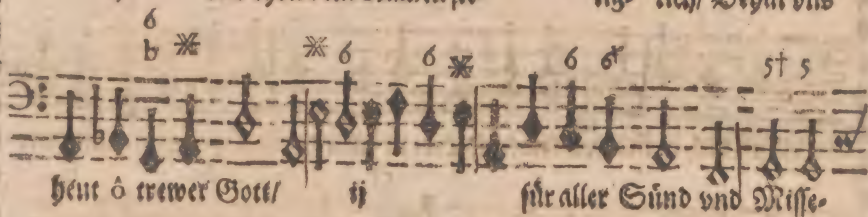 6
b ※ ※ 6 6 ※ 6 6† 5† 5
heut ô trewer Gott/ ij für aller Sünd vnd Misse-